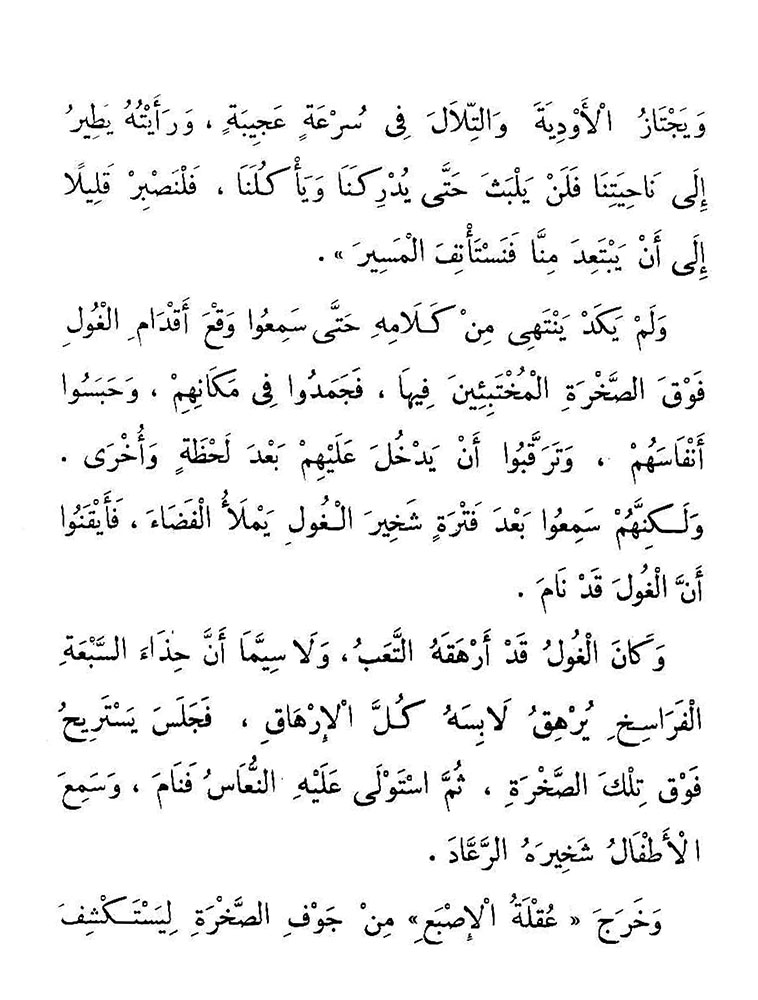 وَيَجْتَازُ الْأَوْدِيَةَ وَالتِّلَالَ فِى سُرْعَةٍ عَجِيبَةٍ ، وَرَأَيْتُهُ يَطِيرُ
إِلَى نَاحِيَتِنَا فَلَنْ يَلْبَثَ حَتَّى يُدْرِكَنَا وَيَأْكُلَنَا ، فَلْنَصْبِرْ قَلِيلًا
إِلَى أَنْ يَبْتَعِدَ مِنَّا فَنَسْتَأْنِفَ الْمَسِيرَ » .
وَلَمْ يَكَدْ يَنْتَهِى مِنْ كَلَامِهِ حَتَّى سَمِعُوا وَقْعَ أَقْدَامِ الْغُولِ
فَوْقَ الصَّخْرَةِ الْمُخْتَبِئِينَ فِيهَا ، فَجَمَدُوا فِى مَكَانِهِمْ ، وَحَبَسُوا
أَنْفَاسَهُمْ ، وَتَرَقَّبُوا أَنْ يَدْخُلَ عَلَيْهِمْ بَعْدَ لَحْظَةٍ وَأُخْرَى .
وَلَـكِنَّهُمْ سَمِعُوا بَعْدَ فَتْرَةٍ شَخِيرَ الْغُولِ يَمْلَأُ الْفَضَاءَ ، فَأَيْقَنُوا
أَنَّ الْغُولَ قَدْ نَامَ .
وَكَانَ الْغُولُ قَدْ أَرْهَقَهُ التَّعَبُ ، وَلَا سِيَّمَا أَنَّ حِذَاءَ السَّبْعَةِ
الْفَرَاسِخِ يُرْهِقُ لَابِسَهُ كُلَّ الْإِرْهَاقِ ، فَجَلَسَ يَسْتَرِيحُ
فَوْق تِلْكَ الصَّخْرَةِ ، ثُمَّ اسْتَوْلَى عَلَيْهِ النُّعَاسُ فَنَامَ ، وَسَمِعَ
الْأَطْفَالُ شَخِيرَهُ الرَّعَّادَ .
وَخَرَجَ « عُقْلَةُ الْإِصْبَعِ » مِنْ جَوْفِ الصَّخْرَةِ لِيَسْتَـكْشِفَ